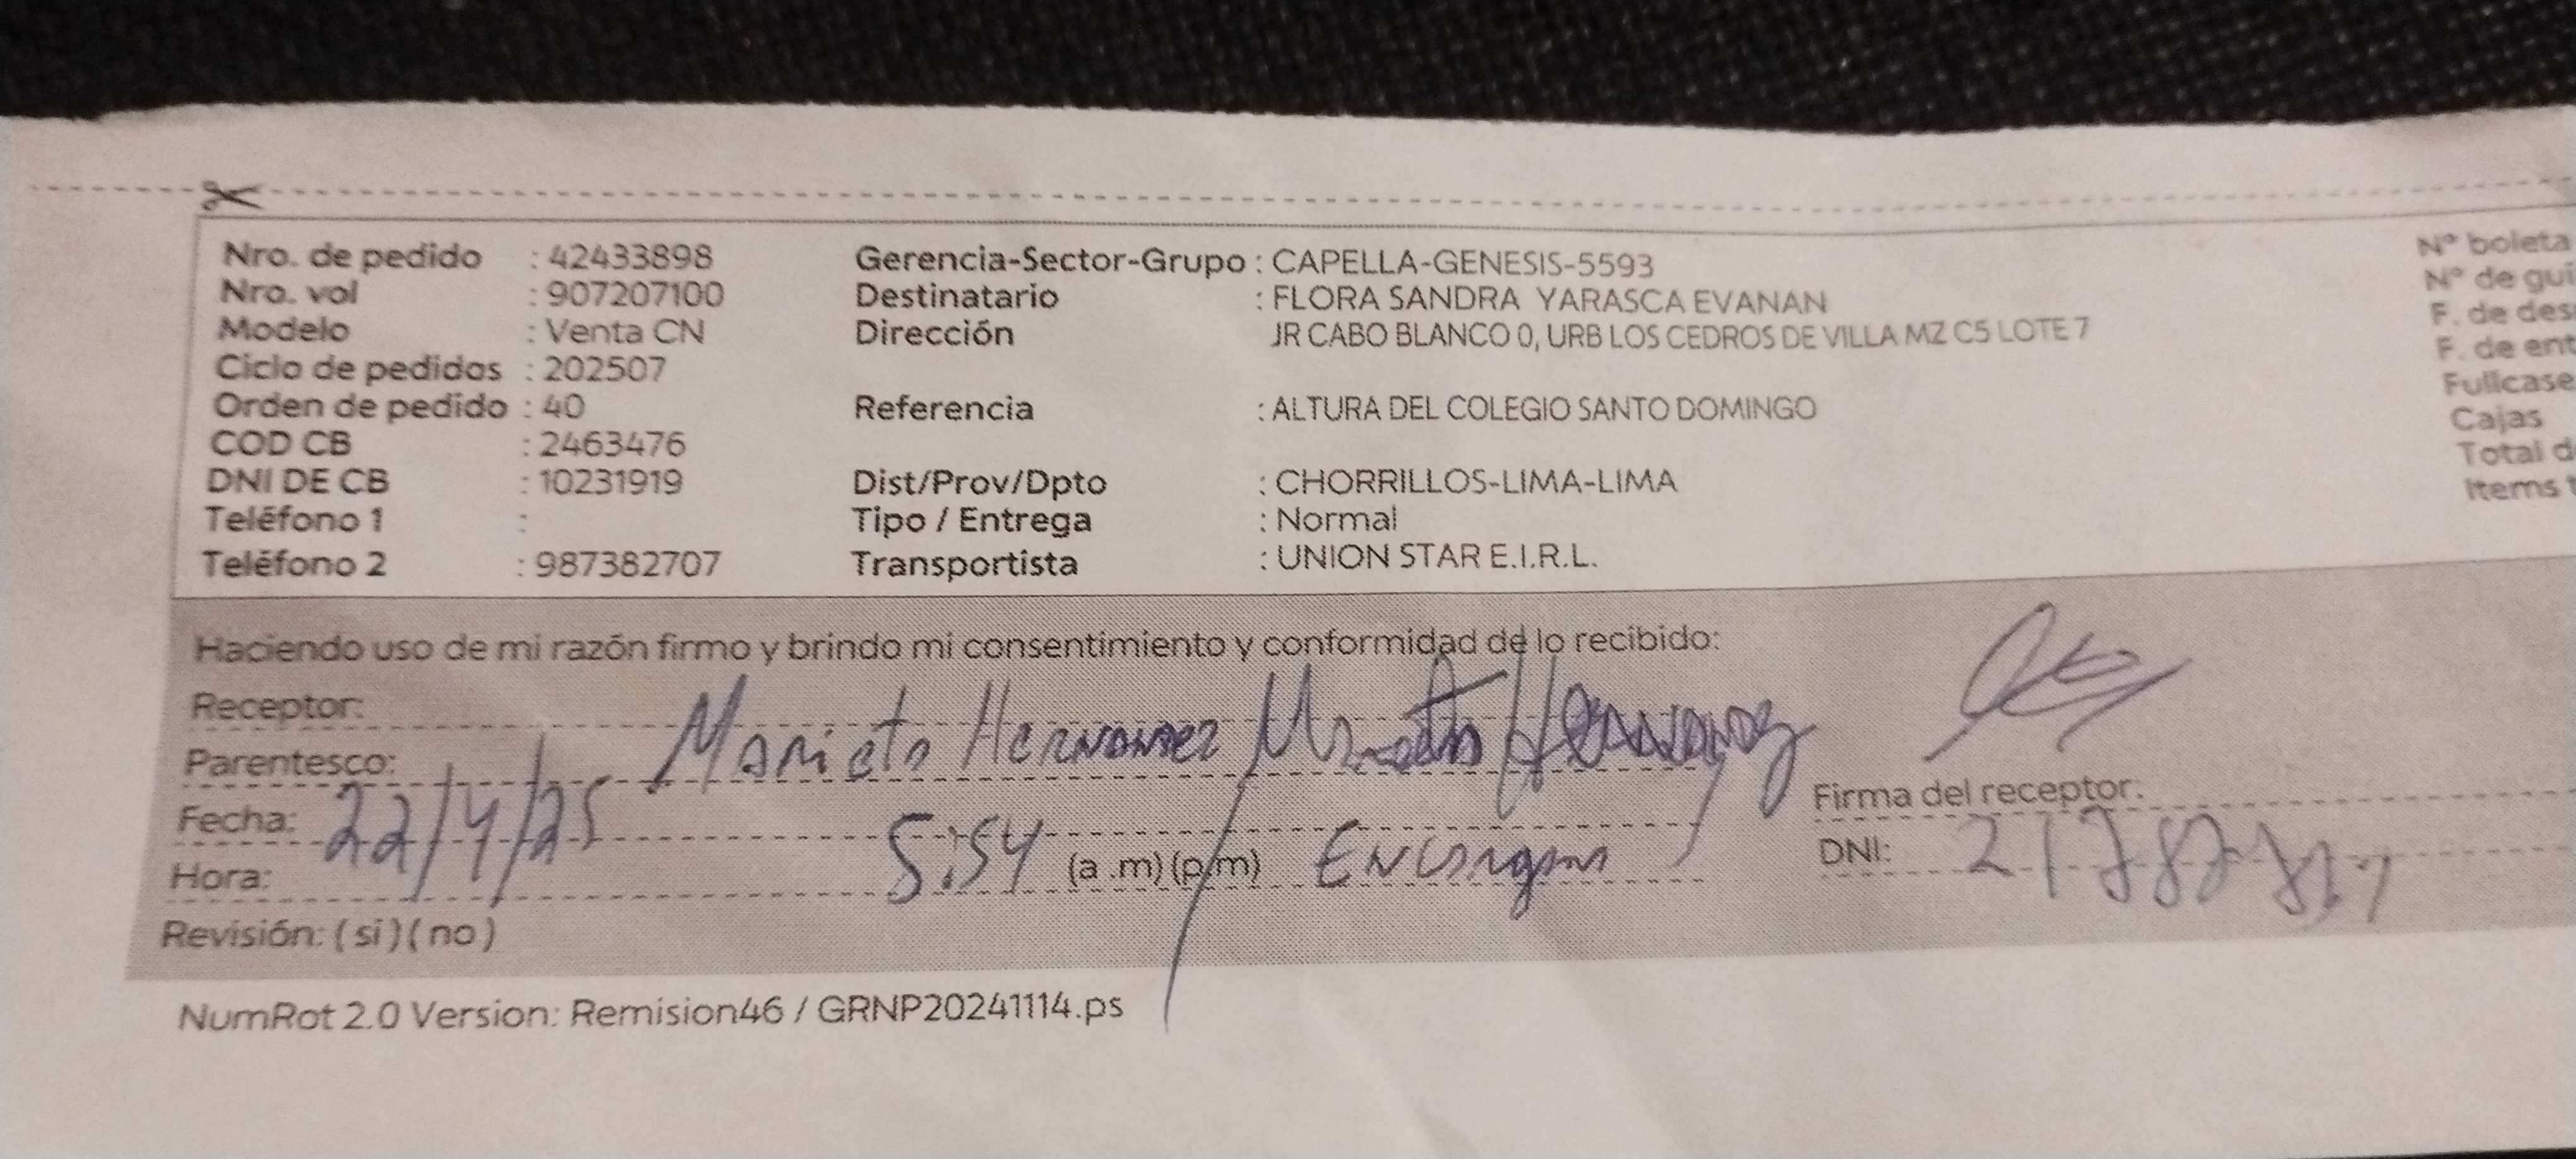 Nro. de pedido : 42433898 Gerencia-Sector-Grupo : CAPELLA-GENESIS-5593 N° boleta
Nro. vol : 907207100 Destinatario : FLORA SANDRA YARASCA EVANAN N° de gui
Modelo : Venta CN Dirección JR CABO BLANCO 0, URB LOS CEDROS DE VILLA MZ C5 LOTE 7 F. de des
Ciclo de pedidos : 202507 F. de ent
Orden de pedido : 40 Referencia : ALTURA DEL COLEGIO SANTO DOMINGO Fullcase
COD CB : 2463476 Cajas
DNI DE CB : 10231919 Dist/Prov/Dpto : CHORRILLOS-LIMA-LIMA Total d
Teléfono 1 : Tipo / Entrega : Normal Items t
Teléfono 2 : 987382707 Transportista : UNION STAR E.I.R.L.
Haciendo uso de mi razón firmo y brindo mi consentimiento y conformidad de lo recibido:
Receptor: Hernandez
Parentesco:
Fecha: 22/4/25 Firma del receptor:
Hora: 5:54 (a .m) (p/m) DNI:
Revisión: ( si ) ( no )
NumRot 2.0 Version: Remision46 / GRNP20241114.ps